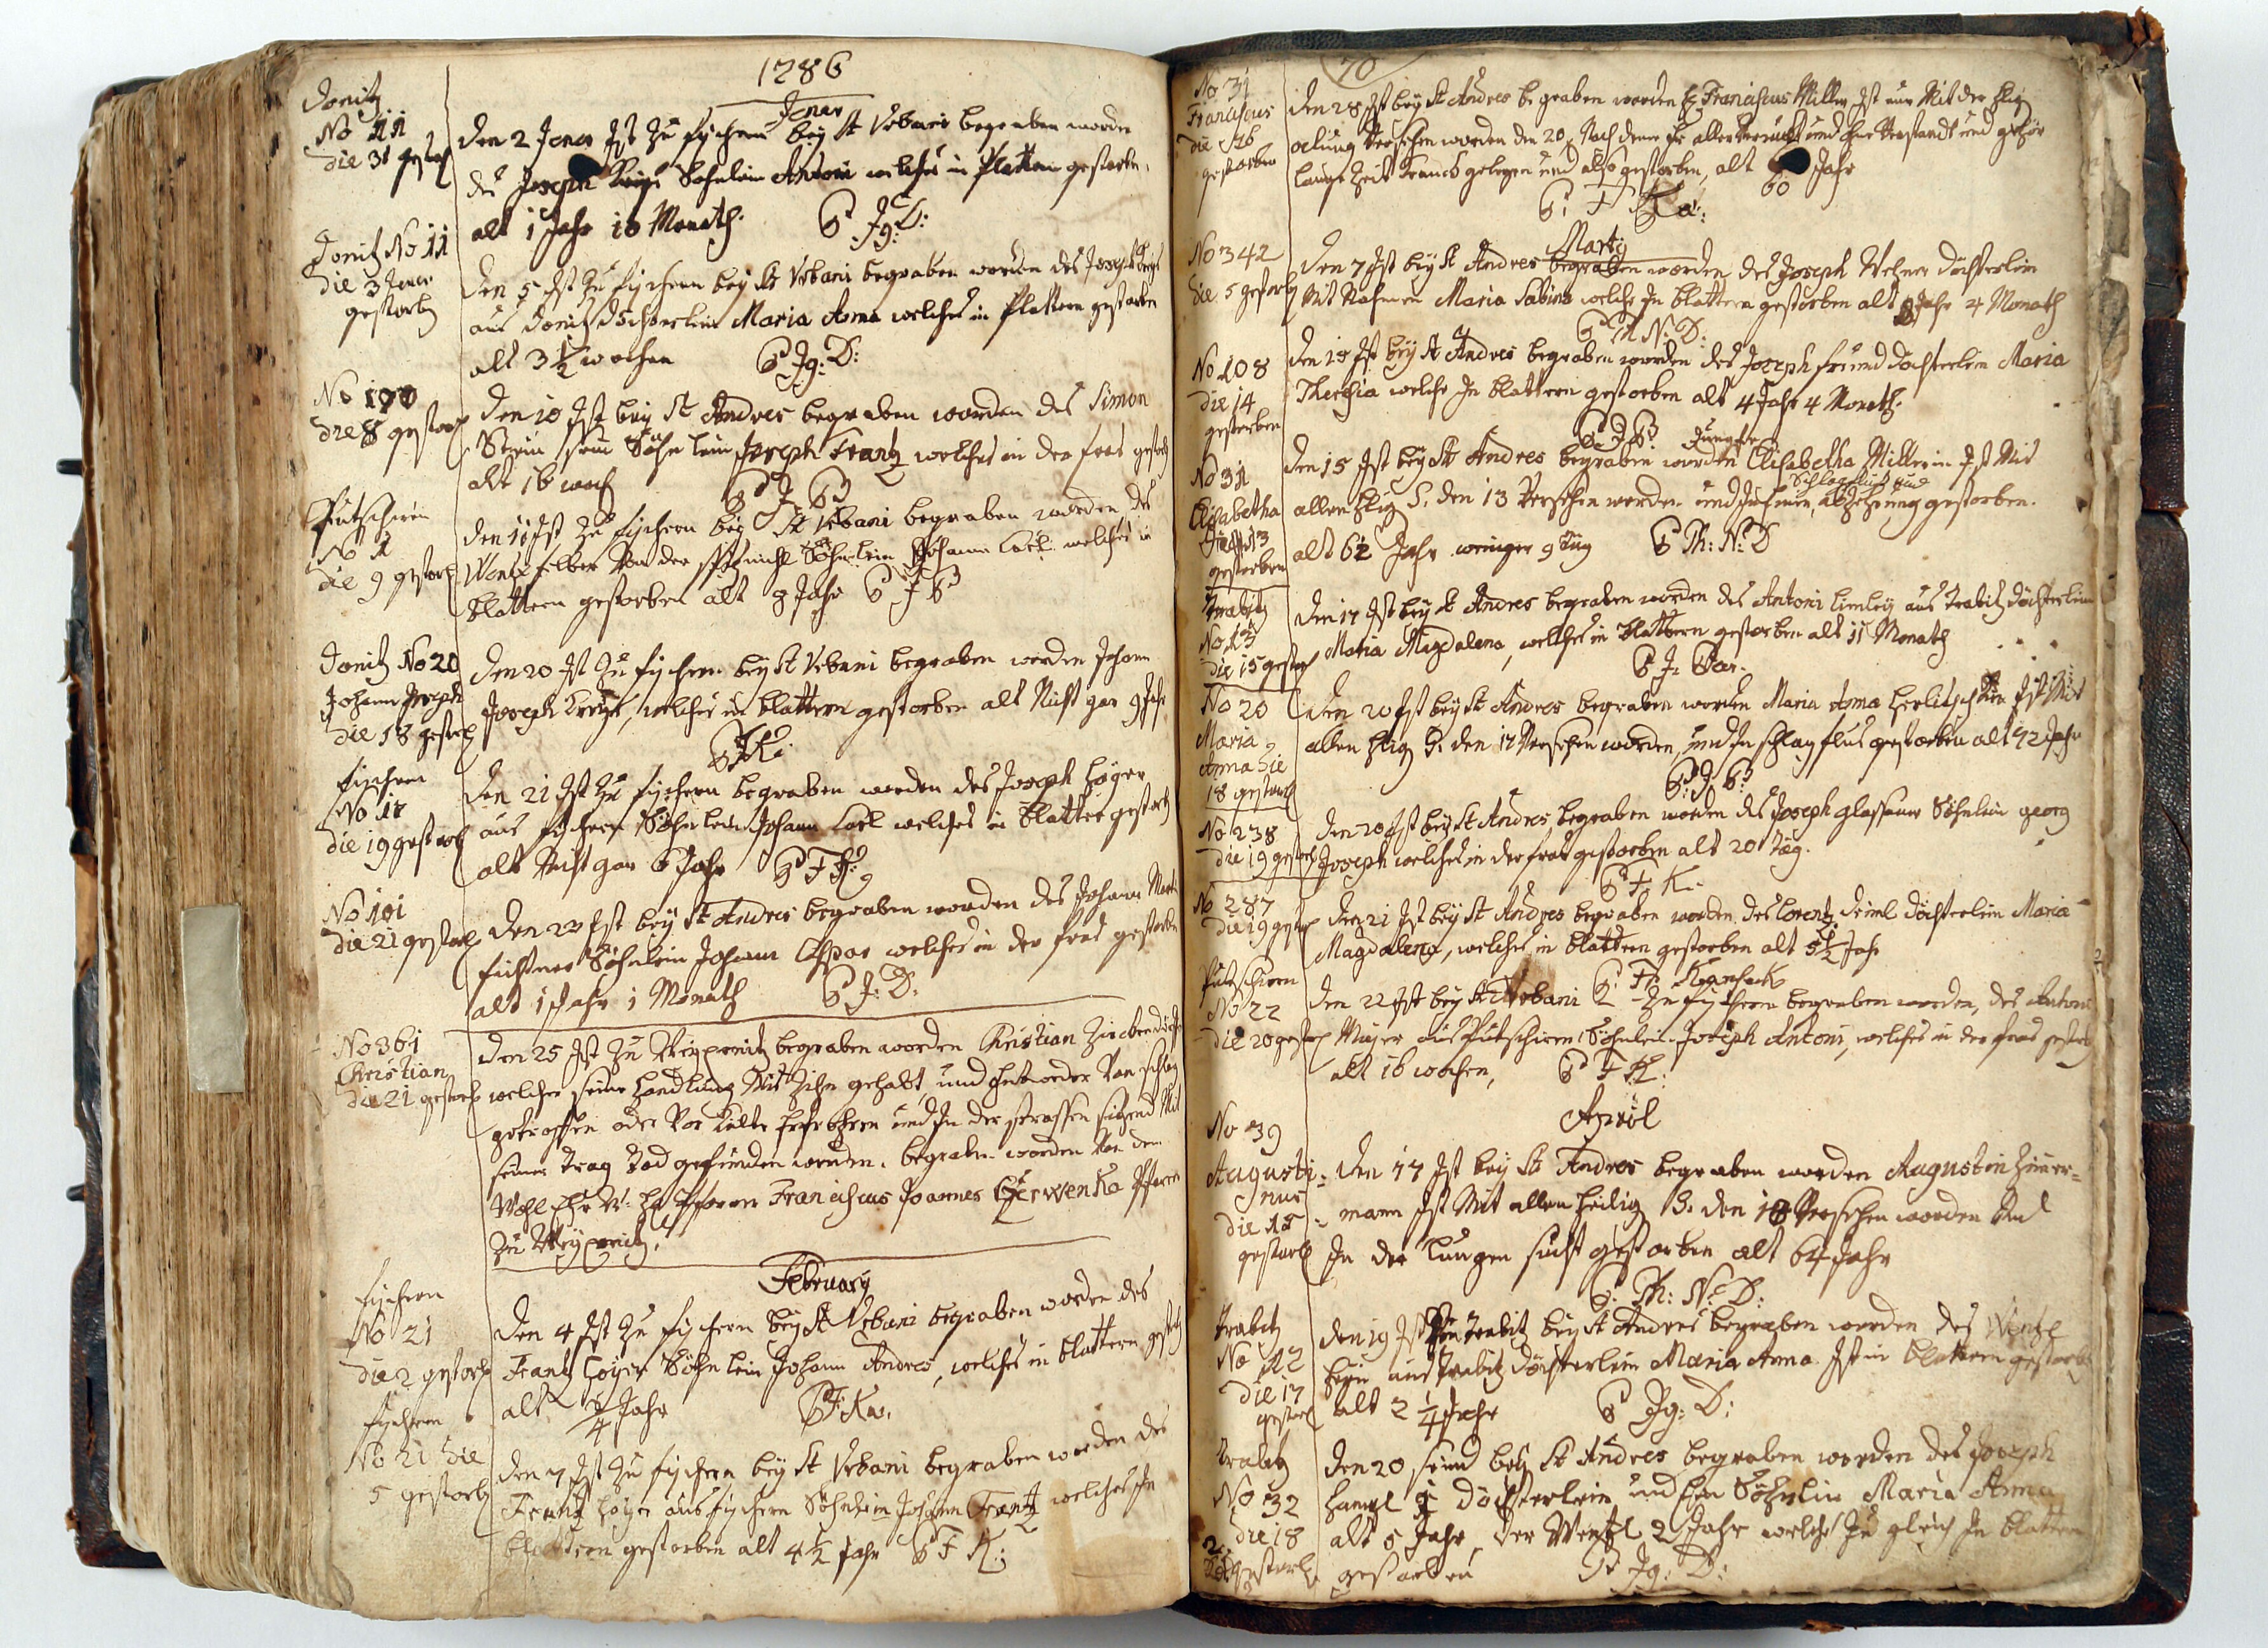 1786
Jenar
Donitz
No 11
die 31 gestorb
Den 2 Jener Ist zu fischern bey St Vrbani begraben worden
des Joseph Söhnlein Antoni welches in Plattern gestorben,
alt 1 Jahr 10 Monath. P Jg: D:
Donitz No 11
die 3 Jener
gestorb
Den 5 Ist zu fischern bey St Vrbani begraben worden des Joseph
aus Donitz döchterlein Maria Anna welches in Plattern gestorben
alt 3 1/2 wochen P Jg: D:
No 190
die 8 gestorb
Den 10 Ist bey St Andres begraben worden des Simon
Söhnlein Joseph Frantz welches in der frais gestorb
alt 16 woch P J B
Putschirn
No 1
die 9 gestorb
Den 11 Ist zu fischern bey St Vrbani begraben worden des
Wentz felber Von der Söhnlein Johann Carl welches in
blattern gestorben alt 9 Jahr P J B
Donitz No 20
Johann Joseph
die 18 gestorb
Den 20 Ist zu fischern bey St Vrbani begraben worden Johann
Joseph, welches in blattern gestorben alt Nicht gar 9 Jahr
P F K:
fischern
No 18
die 19 gestorb
Den 21 Ist zu fischern begraben worden des Joseph Höger
aus fischern Söhnlein Johann Carl welches in blatter gestorb
alt Nicht gar 6 Jahr P F K:
No 101
die 21 gestorb
Den 23 Ist bey St Andres begraben worden des Johann
fichtner Söhnlein Johann Caspar welches in der frais gestorben
alt 1 Jahr 1 Monath P J: D:
No 361
Christian
die 21 gestorb
Den 25 Ist zu begraben worden Christian
welcher seine Handlung Mit Zihn gehabt, und Entweder Von schlag
getroffen oder Vor Kälte und In der strassen sitzend Mit
seiner Trag Tod gefunden worden. begraben worden Von dem
Wohl Ehr W: H: Pfarrer Franciscus Joannes Czerwenka Pfarrer
zu
February
fischern
No 21
die 2 gestorb
Den 4 Ist zu fischern bey St Vrbani begraben worden des
Frantz Höger Söhnlein Johann Andres, welches in blattern gestorb
alt 3/4 Jahr P F Kar.
fischern
No 21 die
5 gestorb
Den 7 Ist zu fischern bey St Vrbani begraben worden des
Frantz Höger aus fischern Söhnlein Johann Frantz welches In
blattern gestorben alt 4 1/2 Jahr P F K:
70
No 31
Franciscus
die 26
gestorben
Den 28 Ist bey St Andres begraben worden H Franciscus Miller Ist nur Mit der Hlig
ölung Versehen worden den 20, Nach deme er aller Verruckt und ohne Verstandt und gehör
lange Zeit Kranck gelegen und also gestorben, alt 60 Jahr
P: F Ka:
Marty
No 342
die 5 gestorb
Den 7 Ist bey St Andres begraben worden des Joseph döchterlein
Mit Nahmen Maria Sabina welche In blattern gestorben alt Jahr 4 Monath
P Th N: D:
No 108
die 14
gestorben
Den 15 Ist bey St Andres begraben worden des Joseph freund döchterlein Maria
Theresia welche In blattern gestorben alt 4 Jahr 4 Monath.
P J B
No 31
Elisabetha
die 13
gestorben
Den 15 Ist bey St Andres begraben worden Jungfr Elisabetha Millerin Ist Mit
allen Hlig S. den 13 Versehen worden und Schlagfluss und abzehrung gestorben.
alt 62 Jahr weniger 9 Tag P Th: N: D
Trabitz
No 13
die 15 gestorb
Den 17 Ist bey St Andres begraben worden des Antoni aus Trabitz döchterlein
Maria Magdalena, welches in blattern gestorben alt 11 Monath
P J: Kar.
No 20
Maria
Anna die
18 gestorb
Den 20 Ist bey St Andres begraben worden Maria Anna Ist Mit
allen Hlig S. den 17 Versehen worden, und In schlag flus gestorben alt 42 Jahr
P J B
No 238
die 19 gestorb
Den 20 Ist bey St Andres begraben worden des Joseph glassauer Söhnlein georg
Joseph welches in der frais gestorben alt 20 Täg.
P F. K.
No 287
die 19 gestorb
Den 21 Ist bey St Andres begraben worden des Lorentz deiml döchterlein Maria
Magdalena, welches in blattern gestorben alt 5 1/2 Jahr
P. Fr
Putschirn
No 22
die 20 gestorb
Den 22 Ist bey St Vrbani zu fischern begraben worden, des Antoni
Majer aus Putschirn Söhnlein Joseph Antoni, welches in der frais gestorb
alt 16 wochen, P F K:
April
No 39
Augusti=
nus
die 15
gestorb
Den 17 Ist bey St Andres begraben worden Augustin Zimer=
mann Ist Mit allen heilig S. den Versehen worden Und
In der Lungen sucht gestorben alt 64 Jahr
P. Th: N: D:
Trabitz
No 12
die 17
gestorb
Den 19 Ist Von Trabitz bey St Andres begraben worden des Wentzl
aus Trabitz döchterlein Maria Anna Ist in blattern gestorb
alt 2 1/4 Jahr P Jg: D:
Trabitz
No 32
die 18
gestorb
Den 20 seind bey St Andres begraben worden des Joseph
döchterlein und Ein Söhnlein Maria Anna
alt 5 Jahr, der Wentzl 2 Jahr welche Zu gleich In blattern
gestorben P Jg: D: